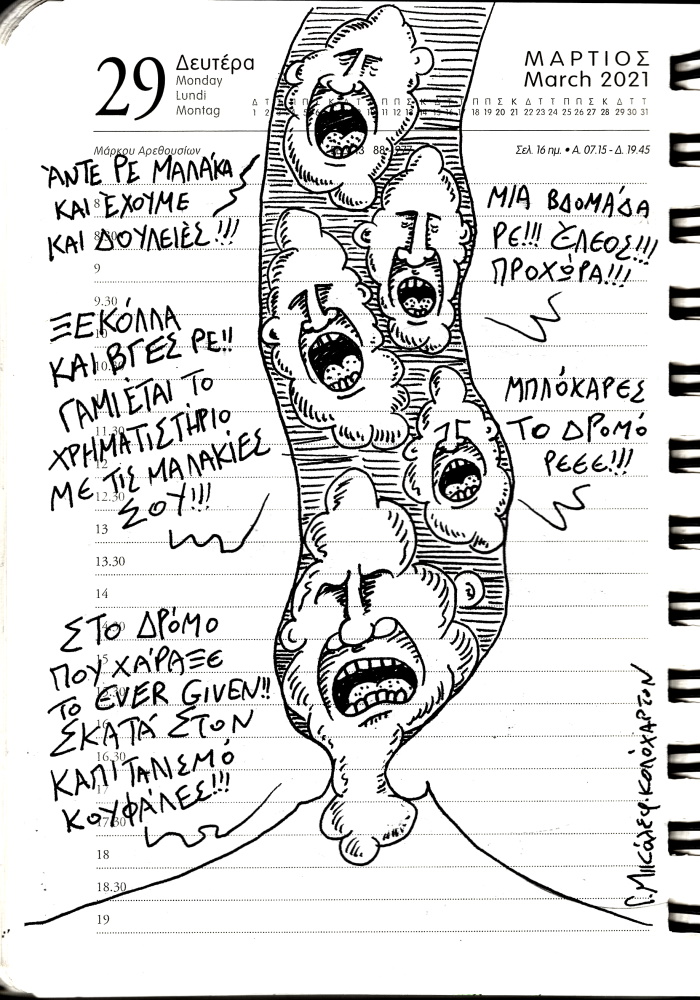 29
Δευτέρα
Monday
Lundi
Montag
ΜΑΡΤΙΟΣ
March 2021
18 19 20 21 22 23 24 25 26 27 28 29 30 31
Μάρκου Αρεθουσίου
Σελ. 16 ημ. • Α. 07.15 - Δ. 19.45
ΆΝΤΕ ΡΕ ΜΑΛΆΚΑ
ΚΑΙ ΈΧΟΥΜΕ
ΚΑΙ ΔΟΥΛΕΙΈΣ!!!
ΜΙΑ ΒΔΟΜΆΔΑ
ΡΕ!!! ΈΛΕΟΣ!!!
ΠΡΟΧΏΡΑ!!!
ΞΕΚΌΛΛΑ
ΚΑΙ ΒΓΕΣ ΡΕ!!
ΓΑΜΙΈΤΑΙ ΤΟ
ΧΡΗΜΑΤΙΣΤΉΡΙΟ
ΜΕ ΤΙΣ ΜΑΛΑΚΊΕΣ
ΣΟΥ!!!
ΜΠΛΌΚΑΡΕΣ
ΤΟ ΔΡΌΜΟ
ΡΕΕΕ!!!
ΣΤΟ ΔΡΌΜΟ
ΠΟΥ ΧΆΡΑΞΕ
ΤΟ EVER GIVEN!!
ΣΚΑΤΆ ΣΤΟΝ
ΚΑΠΙΤΑΛΙΣΜΌ
ΚΟΥΦΆΛΕΣ!!!
8
9
9.30
10
11.30
12
12.30
13
13.30
14
15
16.30
17
18
18.30
19